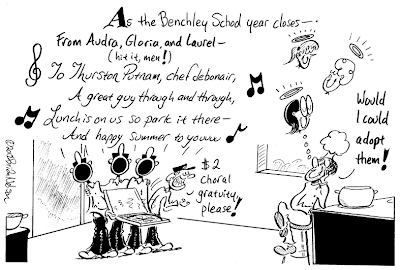 As the Benchley School year closes—
From Audra, Gloria, and Laurel—
(hit it, men!)
To Thurston Putnam, chef debonair,
A great guy through and through,
Lunch is on us so park it there—
And happy summer to youuu
$2
choral
gratuity,
please!
Would
I could
adopt
them!